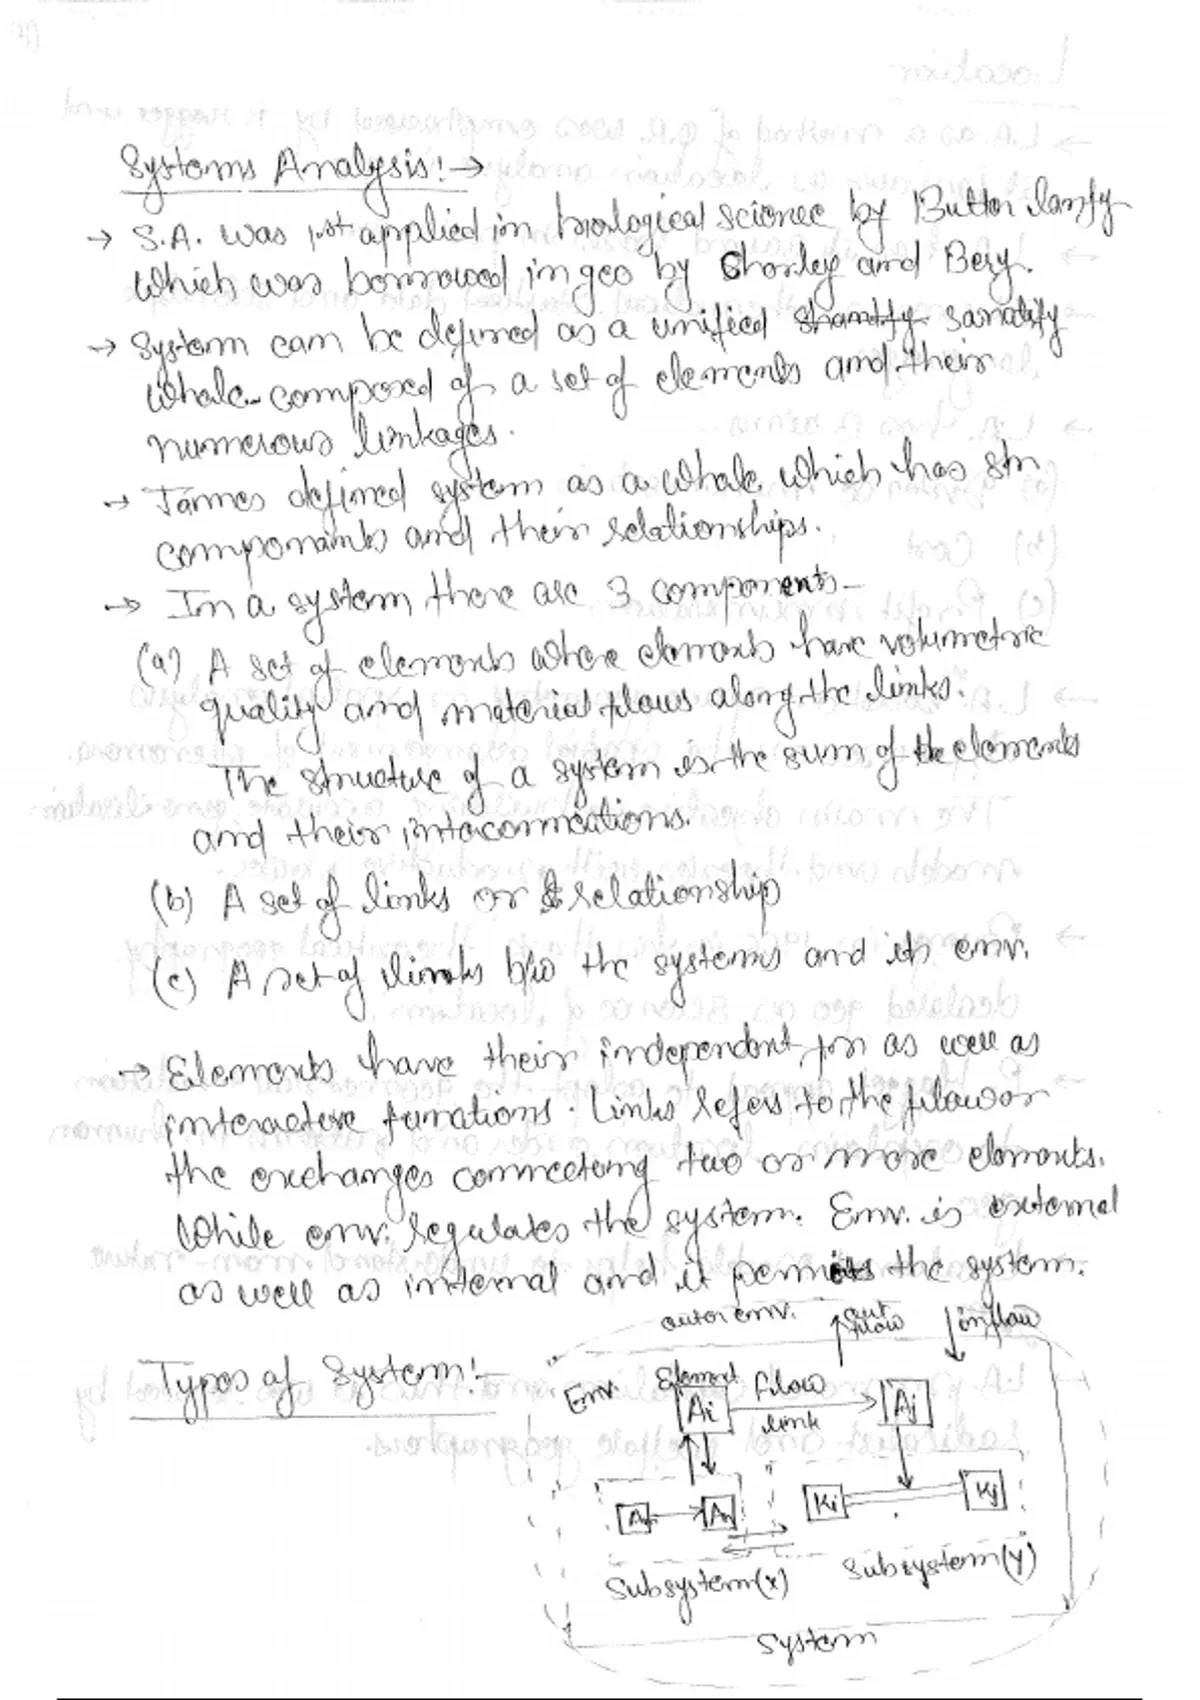 Systoms Analysis:→
→ S.A. was 1st applied in biological science by Button lanfy
Which was borrowed in geo by Chorley and Bery.
→ System can be defined as a unified
Whole composed of a set of elements and their
numerous linkages.
→ James defined system as a whole which has str.
components and their relationships.
→ In a system there are 3 components-
(a) A set of elements where elements have volumetric
quality and material flows along the links.
The structure of a system is the sum of the elements
and their interconnections.
(b) A set of links or relationship
(c) A set of links b/w the systems and its env.
→ Elements have their independent fn as well as
interactive functions. Links refers to the flow or
the exchanges connecting two or more elements.
While env. regulates the system. Env. is external
as well as internal and it permits the system.
outer env. out flow inflow
Types of System:-
Env. Element Flow
Ai link Aj
An Ki Kj
Subsystem(x) Subsystem(y)
System